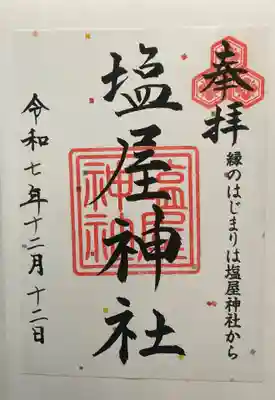 奉拝
縁のはじまりは塩屋神社から
塩屋神社
塩屋神社
令和七年十二月十二日